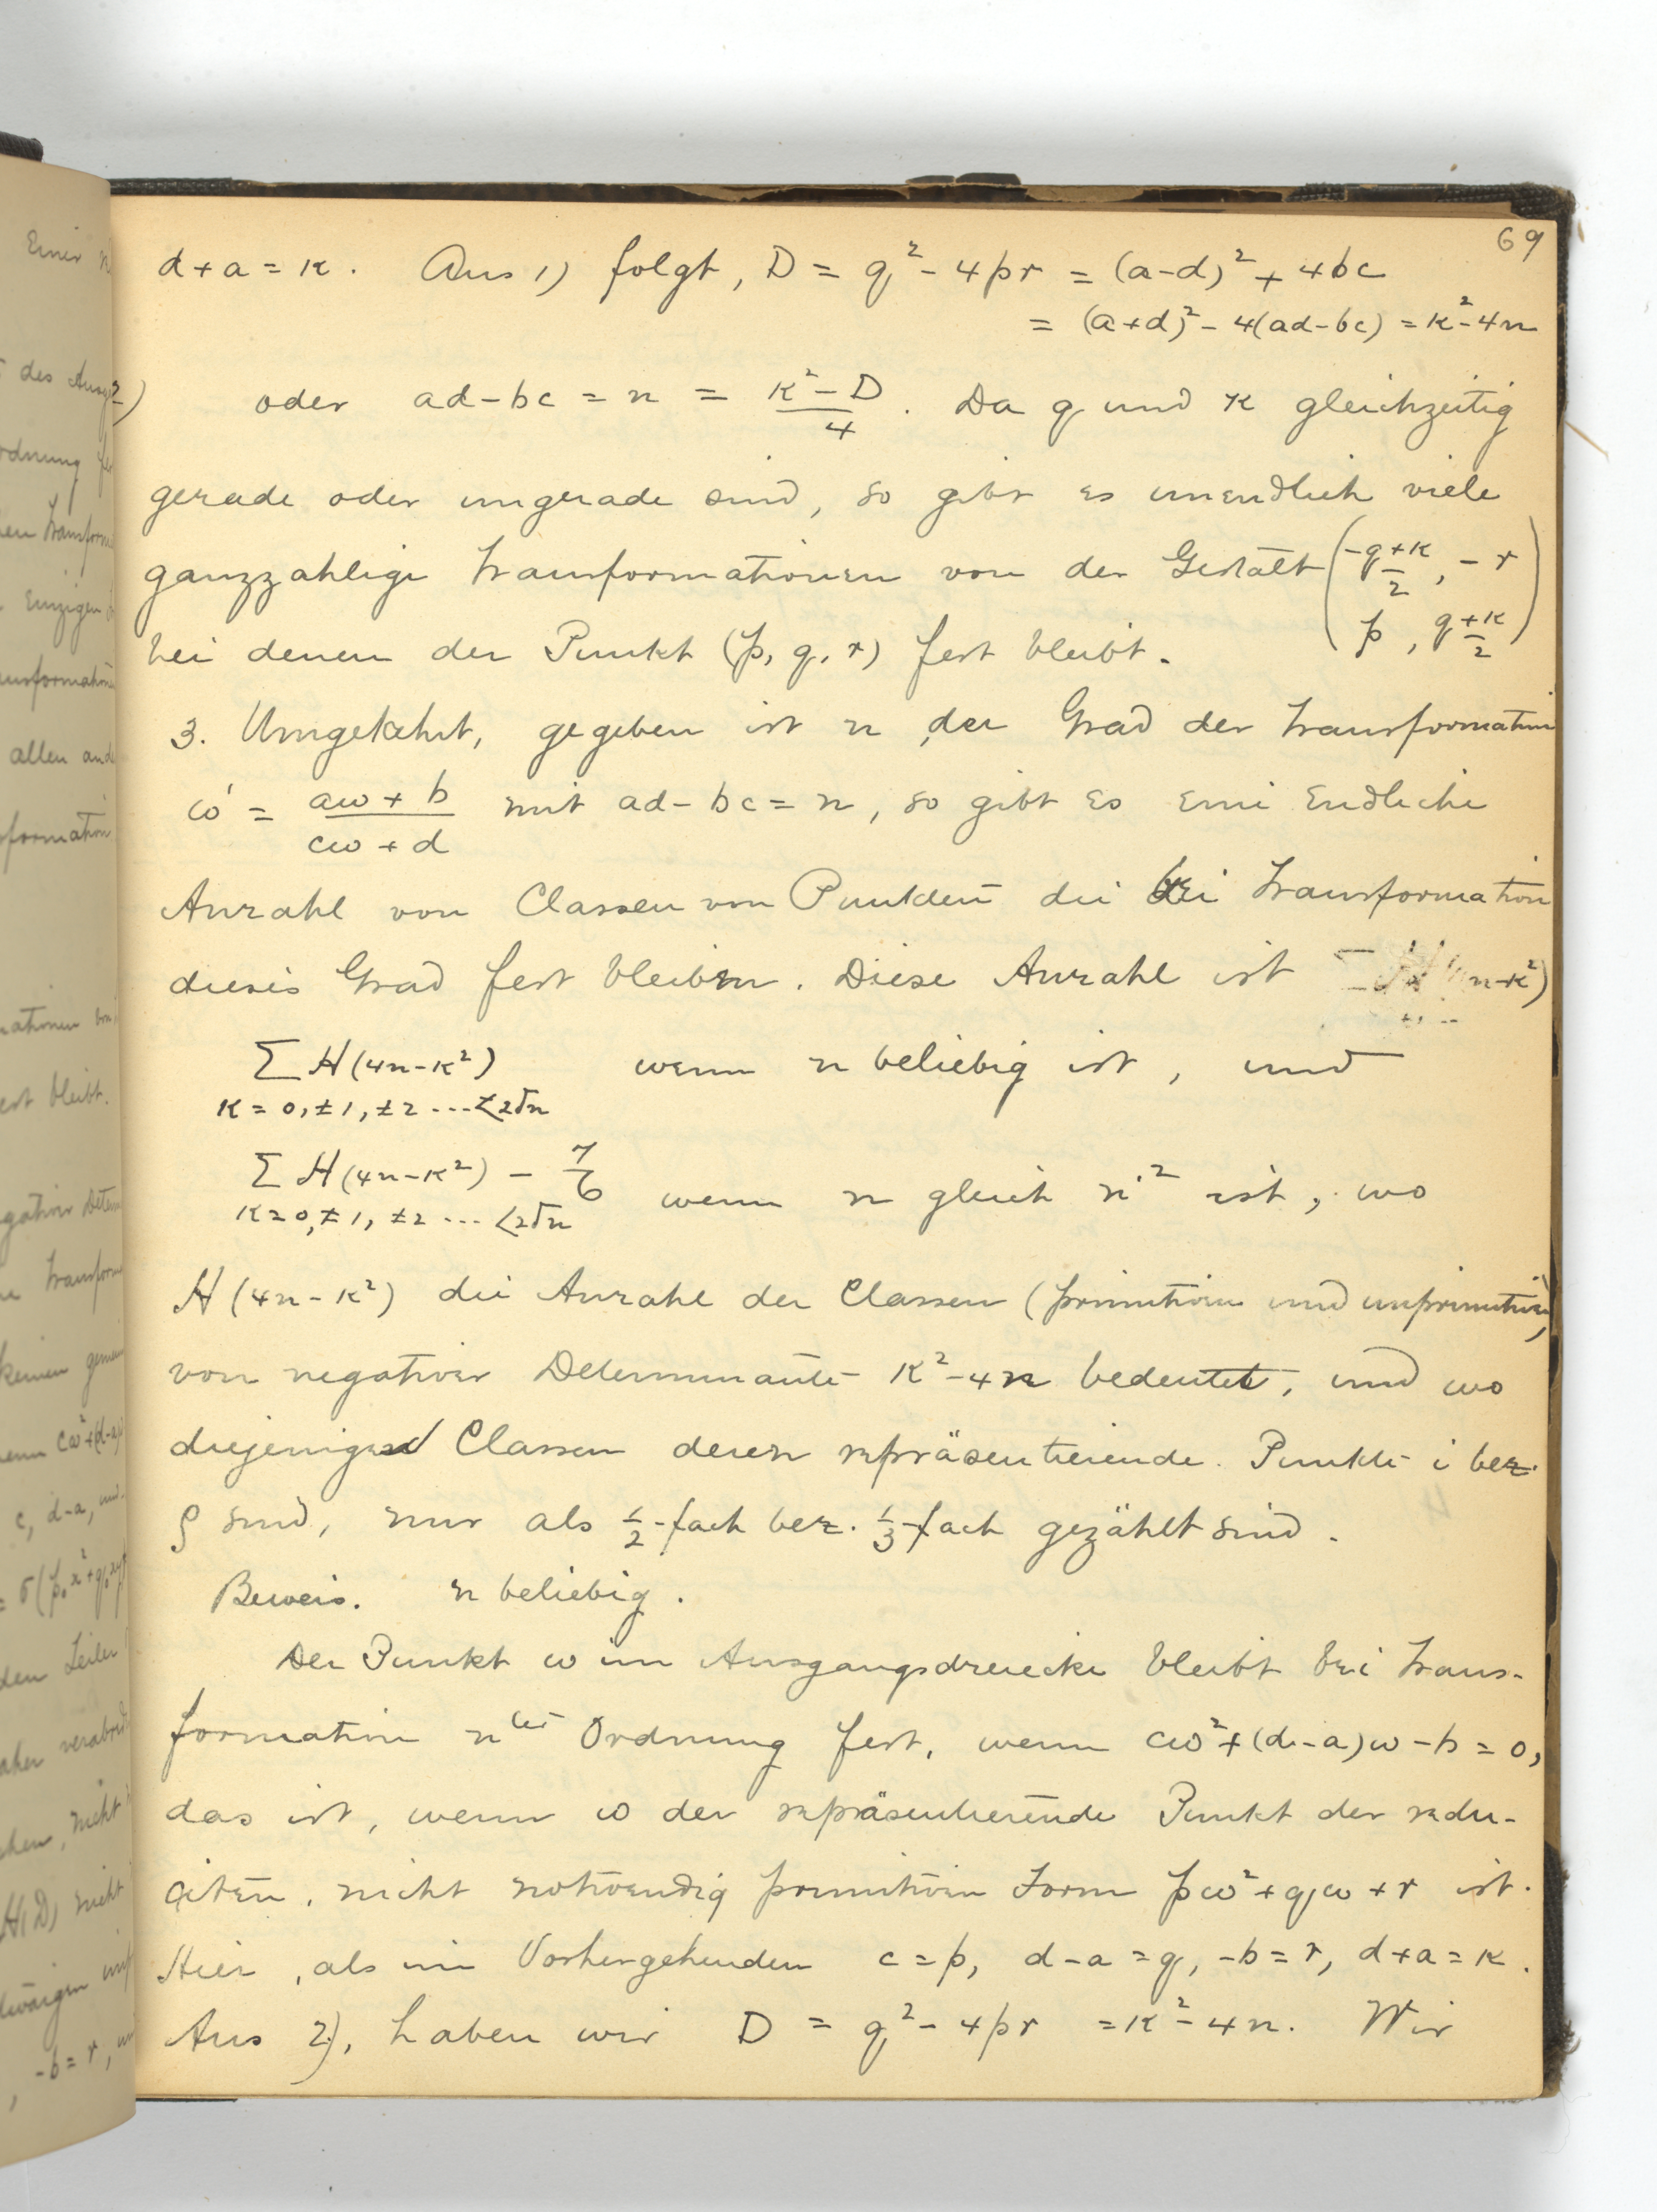 69
d+a=κ. Aus 1) folgt, D = q² - 4pr = (a-d)² + 4bc
= (a+d)² - 4(ad-bc) = κ² - 4n
2) oder ad-bc = n = (κ²-D)/4. Da q und κ gleichzeitig
gerade oder ungerade sind, so gibt es unendlich viele
ganzzahlige Transformationen von der Gestalt ((-q+κ)/2, -r
p, (q+κ)/2)
bei denen der Punkt (p, q, r) fest bleibt.
3. Umgekehrt, gegeben ist n, der Grad der Transformation
ω' = (aω+b)/(cω+d) mit ad-bc=n, so gibt es eine Endliche
Anzahl von Classen von Punkten die bei Transformation
dieses Grad fest bleiben. Diese Anzahl ist n-κ²)
Σ H(4n-κ²) wenn n beliebig ist, und
κ = 0, ±1, ±2 ... <2√n
Σ H(4n-κ²) - 7/6 wenn n gleich n'² ist, wo
κ=0, ±1, ±2 ... <2√n
H(4n-κ²) die Anzahl der Classen (primitiven und unprimitiven)
von negativer Determinante κ²-4n bedeutet, und wo
diejenigen Classen deren repräsentierende Punkte i bez.
ρ sind, nur als ½-fach bez. ⅓-fach gezählt sind.
Beweis. n beliebig.
Der Punkt ω im Ausgangsdreiecke bleibt bei Trans-
formation nter Ordnung fest, wenn cω²+(d-a)ω-b=0,
das ist, wenn ω der repräsentierende Punkt der redu-
cirten, nicht notwendig primitiven Form pω²+qω+r ist.
Hier, als im Vorhergehenden c=p, d-a=q, -b=r, d+a=κ.
Aus 2), haben wir D = q²-4pr = κ²-4n. Wir